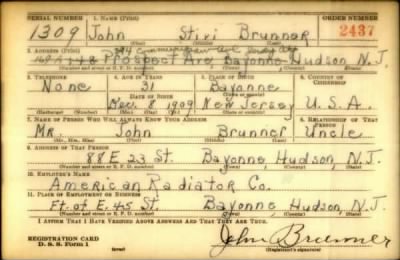 SERIAL NUMBER 1. NAME (Print) ORDER NUMBER
1309 John Stivi Brunner 2437
(First) (Middle) (Last)
2. ADDRESS (Print)
Prospect Ave Bayonne Hudson N.J.
(Number and street or R. F. D. number) (Town) (County) (State)
3. TELEPHONE 4. AGE IN YEARS 5. PLACE OF BIRTH 6. COUNTRY OF CITIZENSHIP
None 31 Bayonne
DATE OF BIRTH (Town or county)
Dec. 8 1909 New Jersey U.S.A.
(Exchange) (Number) (Mo.) (Day) (Yr.) (State or country)
7. NAME OF PERSON WHO WILL ALWAYS KNOW YOUR ADDRESS 8. RELATIONSHIP OF THAT PERSON
Mr. John Brunner Uncle
(Mr., Mrs., Miss) (First) (Middle) (Last)
9. ADDRESS OF THAT PERSON
88 E 23 St. Bayonne Hudson, N.J.
(Number and street or R. F. D. number) (Town) (County) (State)
10. EMPLOYER'S NAME
American Radiator Co.
11. PLACE OF EMPLOYMENT OR BUSINESS
Ft. of E. 45 St. Bayonne Hudson N.J.
(Number and street or R. F. D. number) (Town) (County) (State)
I AFFIRM THAT I HAVE VERIFIED ABOVE ANSWERS AND THAT THEY ARE TRUE.
REGISTRATION CARD
D. S. S. Form 1 (over) John Brunner
(Registrant's signature)